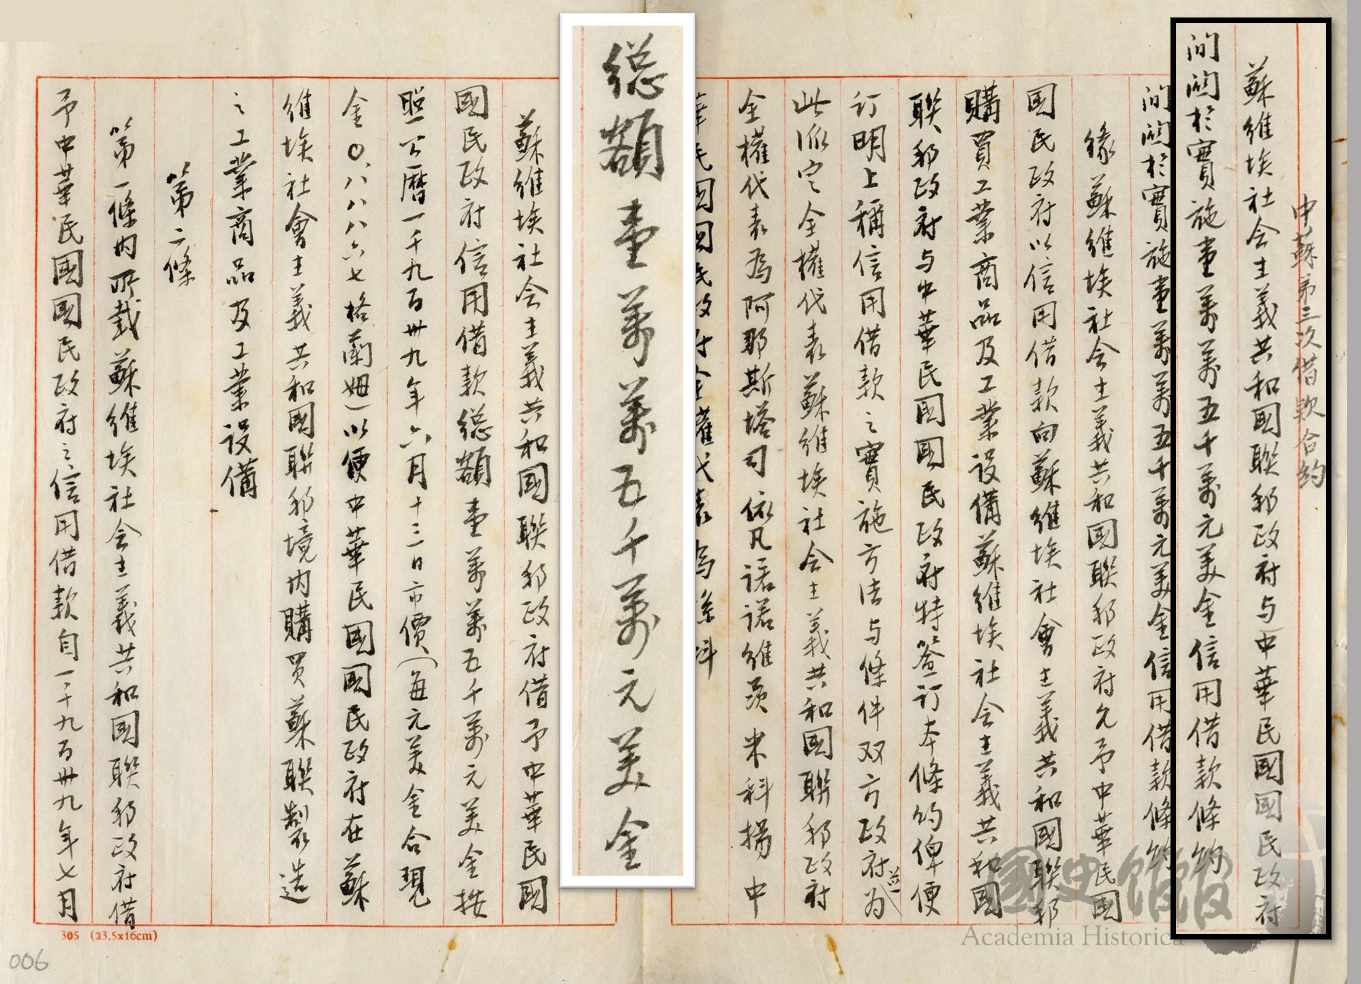 中蘇第三次借款合約
蘇維埃社会主義共和國聯邦政府与中華民國國民政府
间關於實施壹萬萬五千萬元美金信用借款條約
间關於實施壹萬萬五千萬元美金信用借款條約
緣蘇維埃社会主義共和國聯邦政府允予中華民國
國民政府以信用借款向蘇維埃社會主義共和國聯邦
購買工業商品及工業設備蘇維埃社会主義共和國
聯邦政府与中華民國國民政府特簽訂本條約俾便
訂明上稱信用借款之實施方法与條件双方政府为
此派定全權代表蘇維埃社会主義共和國聯邦政府
全權代表為阿那斯塔司依凡諾諾維茨米科揚中
華民國國民政府全權代表為孫科
總額壹萬萬五千萬元美金
蘇維埃社会主義共和國聯邦政府借予中華民國
國民政府信用借款總額壹萬萬五千萬元美金按
照公曆一千九百卅九年六月十三日市價(每元美金合現
金〇.八八八六七格蘭姆)以便中華民國國民政府在蘇
維埃社會主義共和國聯邦境内購買蘇聯製造
之工業商品及工業設備
第二條
第一條内所載蘇維埃社会主義共和國聯邦政府借
予中華民國國民政府之信用借款自一千九百卅九年七月
305 (23.5x16cm)
006
國史館
Academia Historica